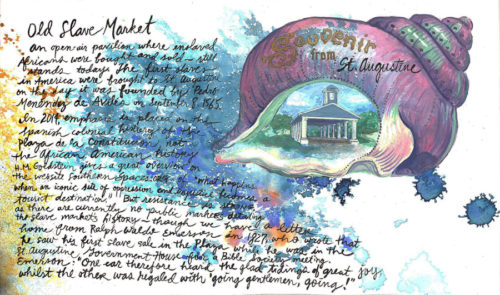 Old Slave Market
an open-air pavilion where enslaved
Africans were bought and sold - still
stands today. The first slaves
in America were brought to St. Augustine
on the day it was founded by Pedro
Menéndez de Aviles on September 8, 1565.
In 2019, emphasis is placed on the
Spanish colonial history of the
Plaza de la Constitución, not
the African American history.
M. Goldstein gives a great overview on
the website Southern Spaces "what happens
when an iconic site of oppression and becomes a
tourist destination". But resistance is
as there are currently no public markers detailing
the slave market's history - though we have a letter
home from Ralph Waldo Emerson in who wrote that
he saw his first slave sale in the Plaza while he was in the
St. Augustine Government House for a Bible Society meeting.
Emerson: "One ear therefore heard the glad tidings of great joy,
whilst the other was regaled with 'going gentlemen, going!'"
Souvenir
from
St. Augustine